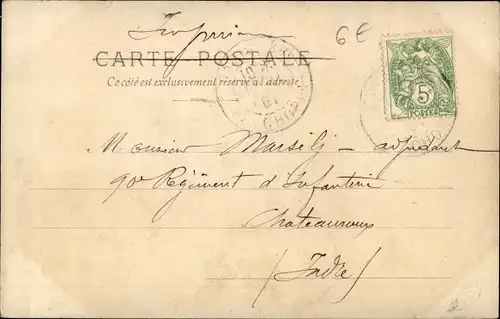 6€
CARTE POSTALE
Ce côté est exclusivement réservé à l'adresse
5c
POSTES
Monsieur Marsilj - adjudant
90e Régiment d'Infanterie
Chateauroux
(Indre)